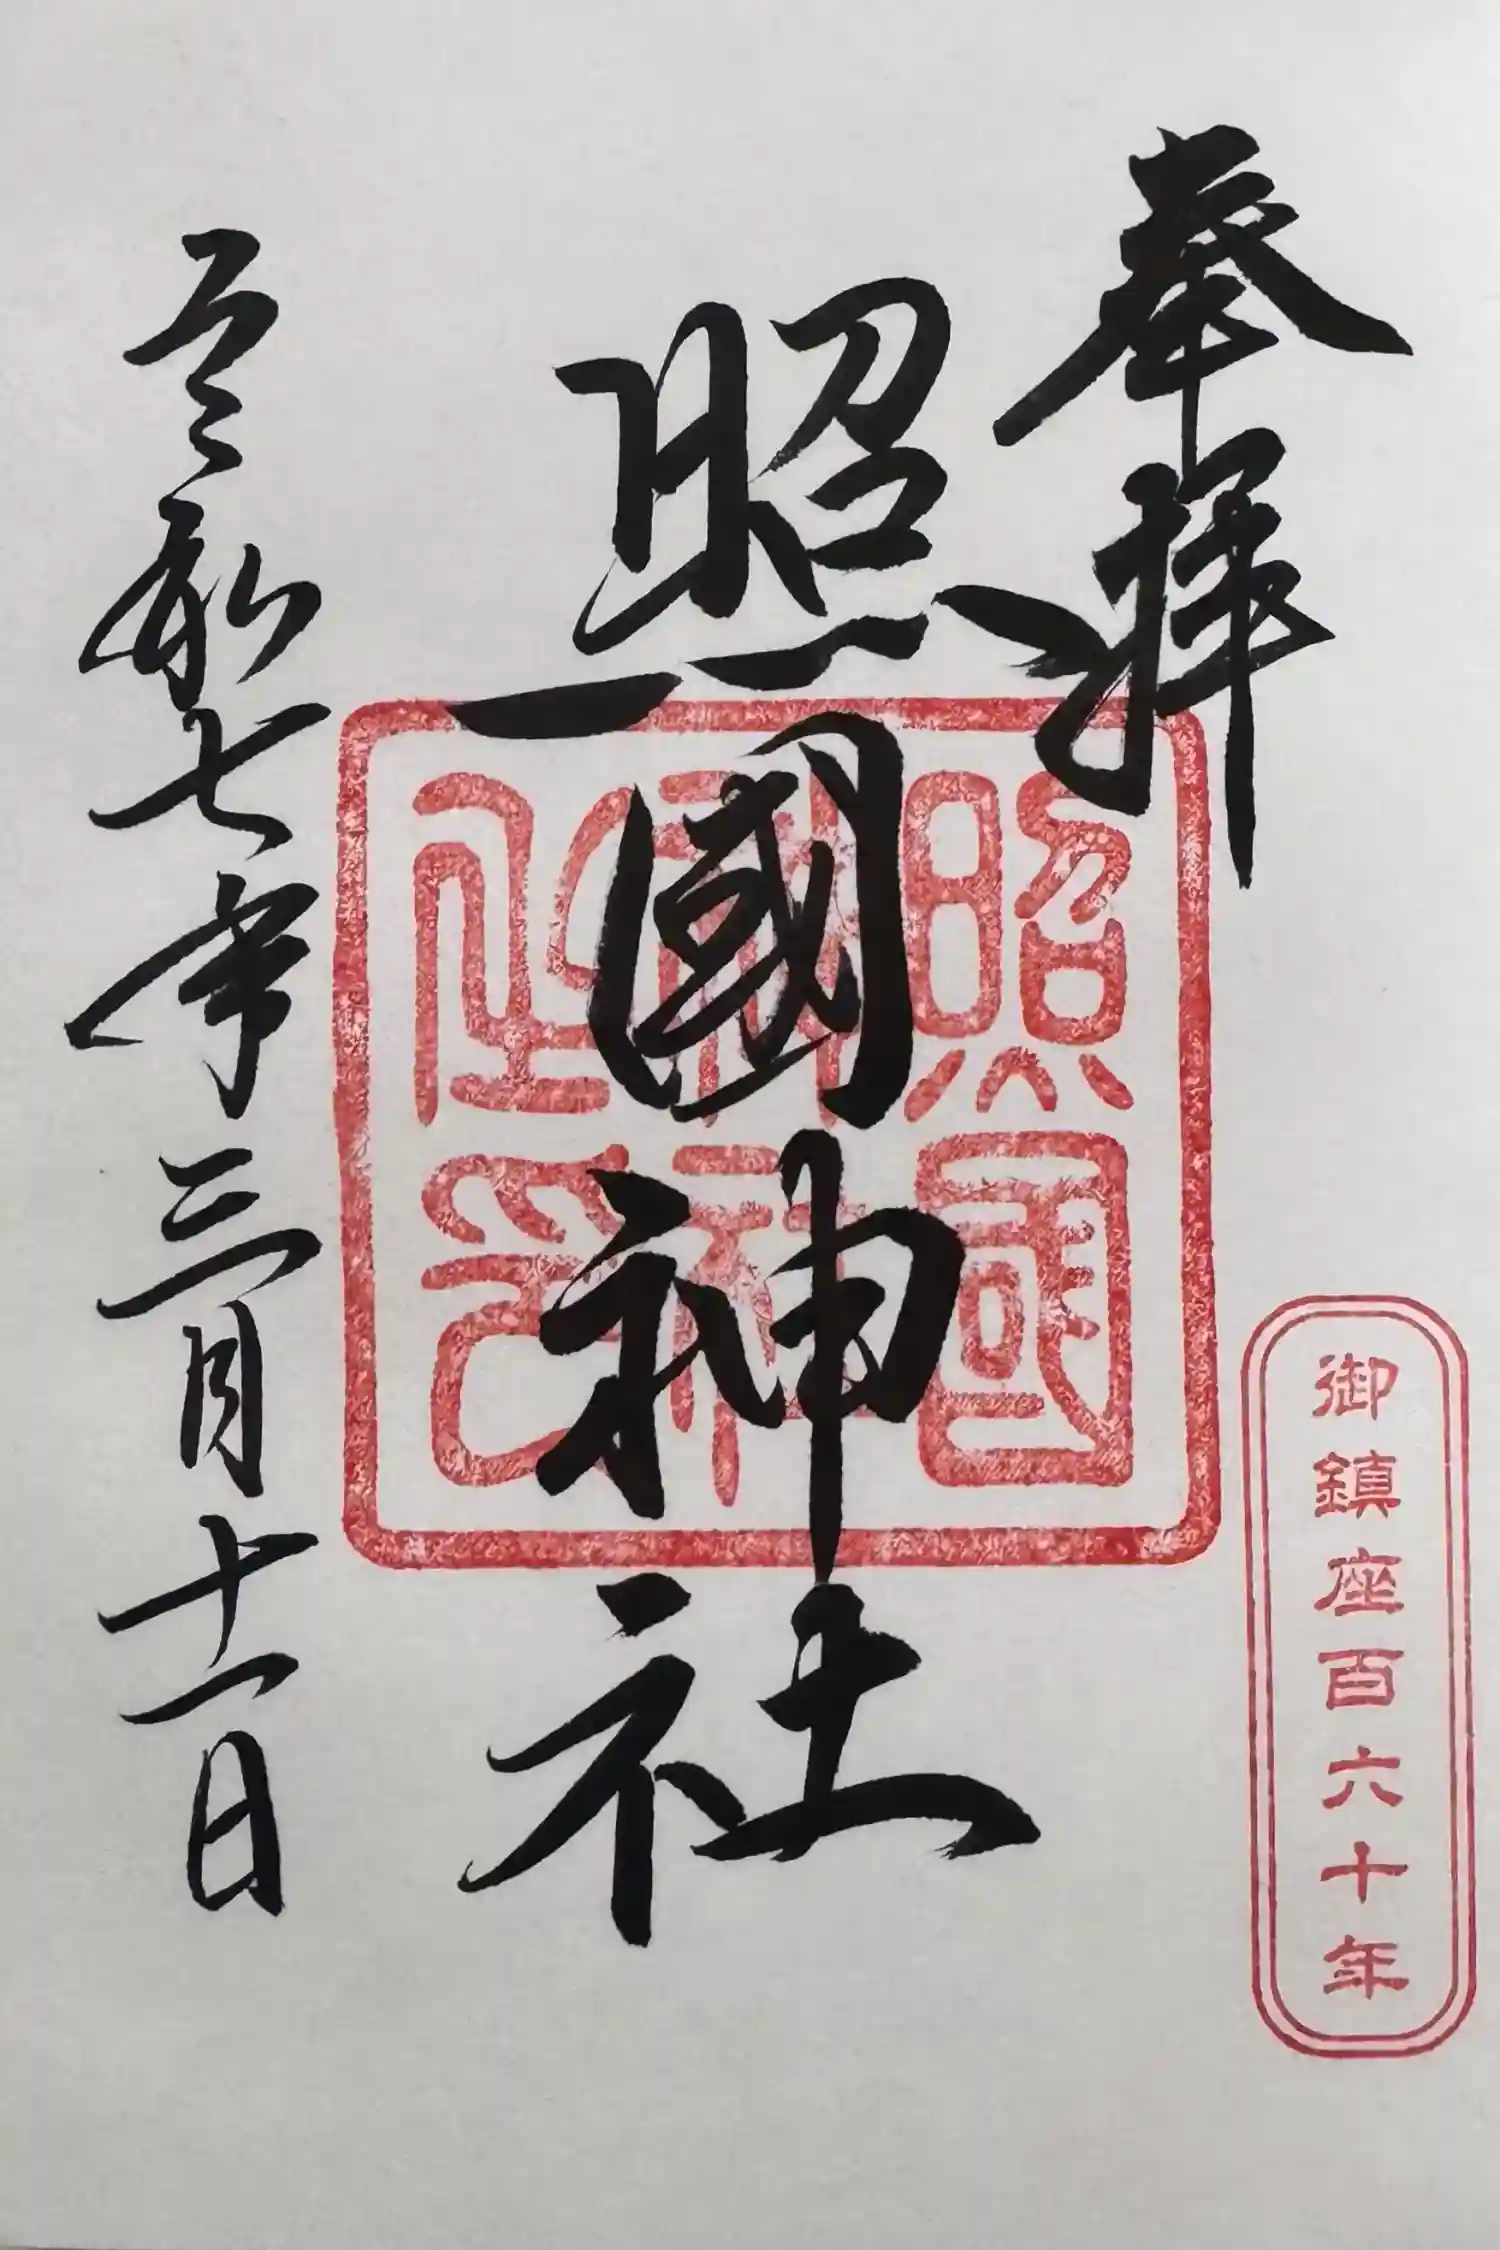 奉拝
御鎮座百六十年
照國神社
照國神社之印
令和七年三月十一日